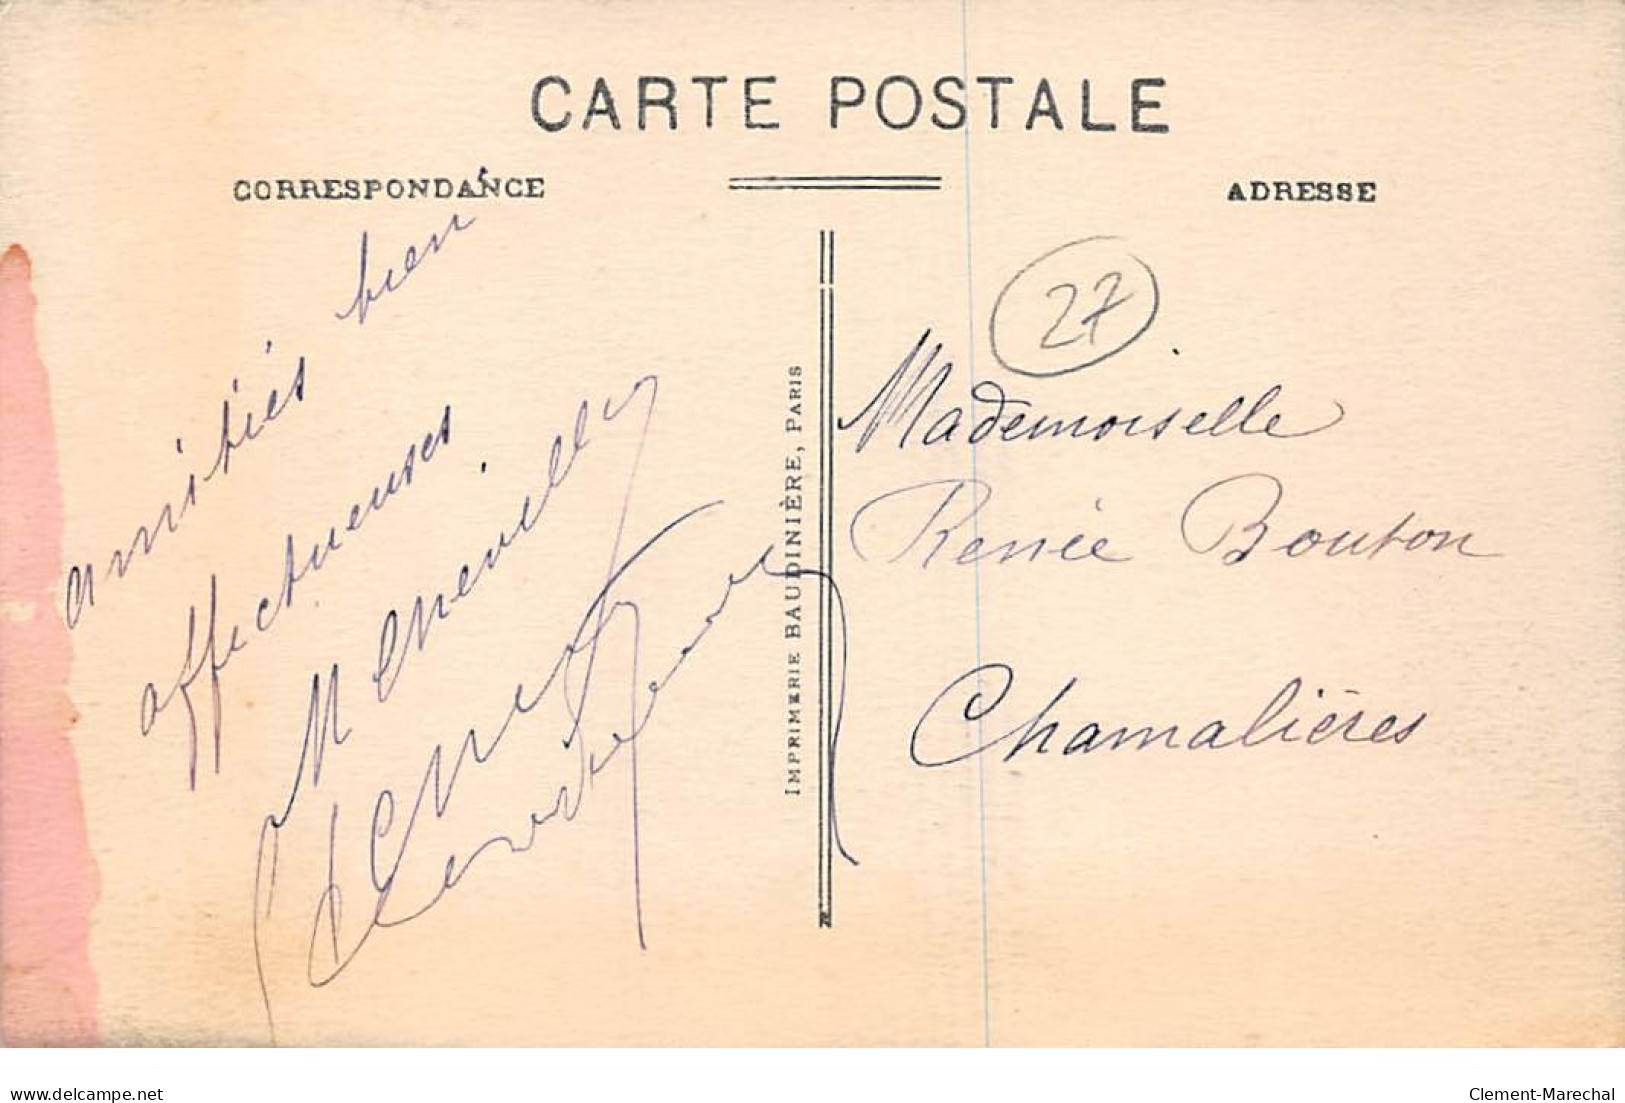 CARTE POSTALE
CORRESPONDANCE
ADRESSE
amitiés bien
affectueuses
27
Mademoiselle
Renée Bouton
Chamalières
IMPRIMERIE BAUDINIÈRE, PARIS
www.delcampe.net
Clement-Marechal